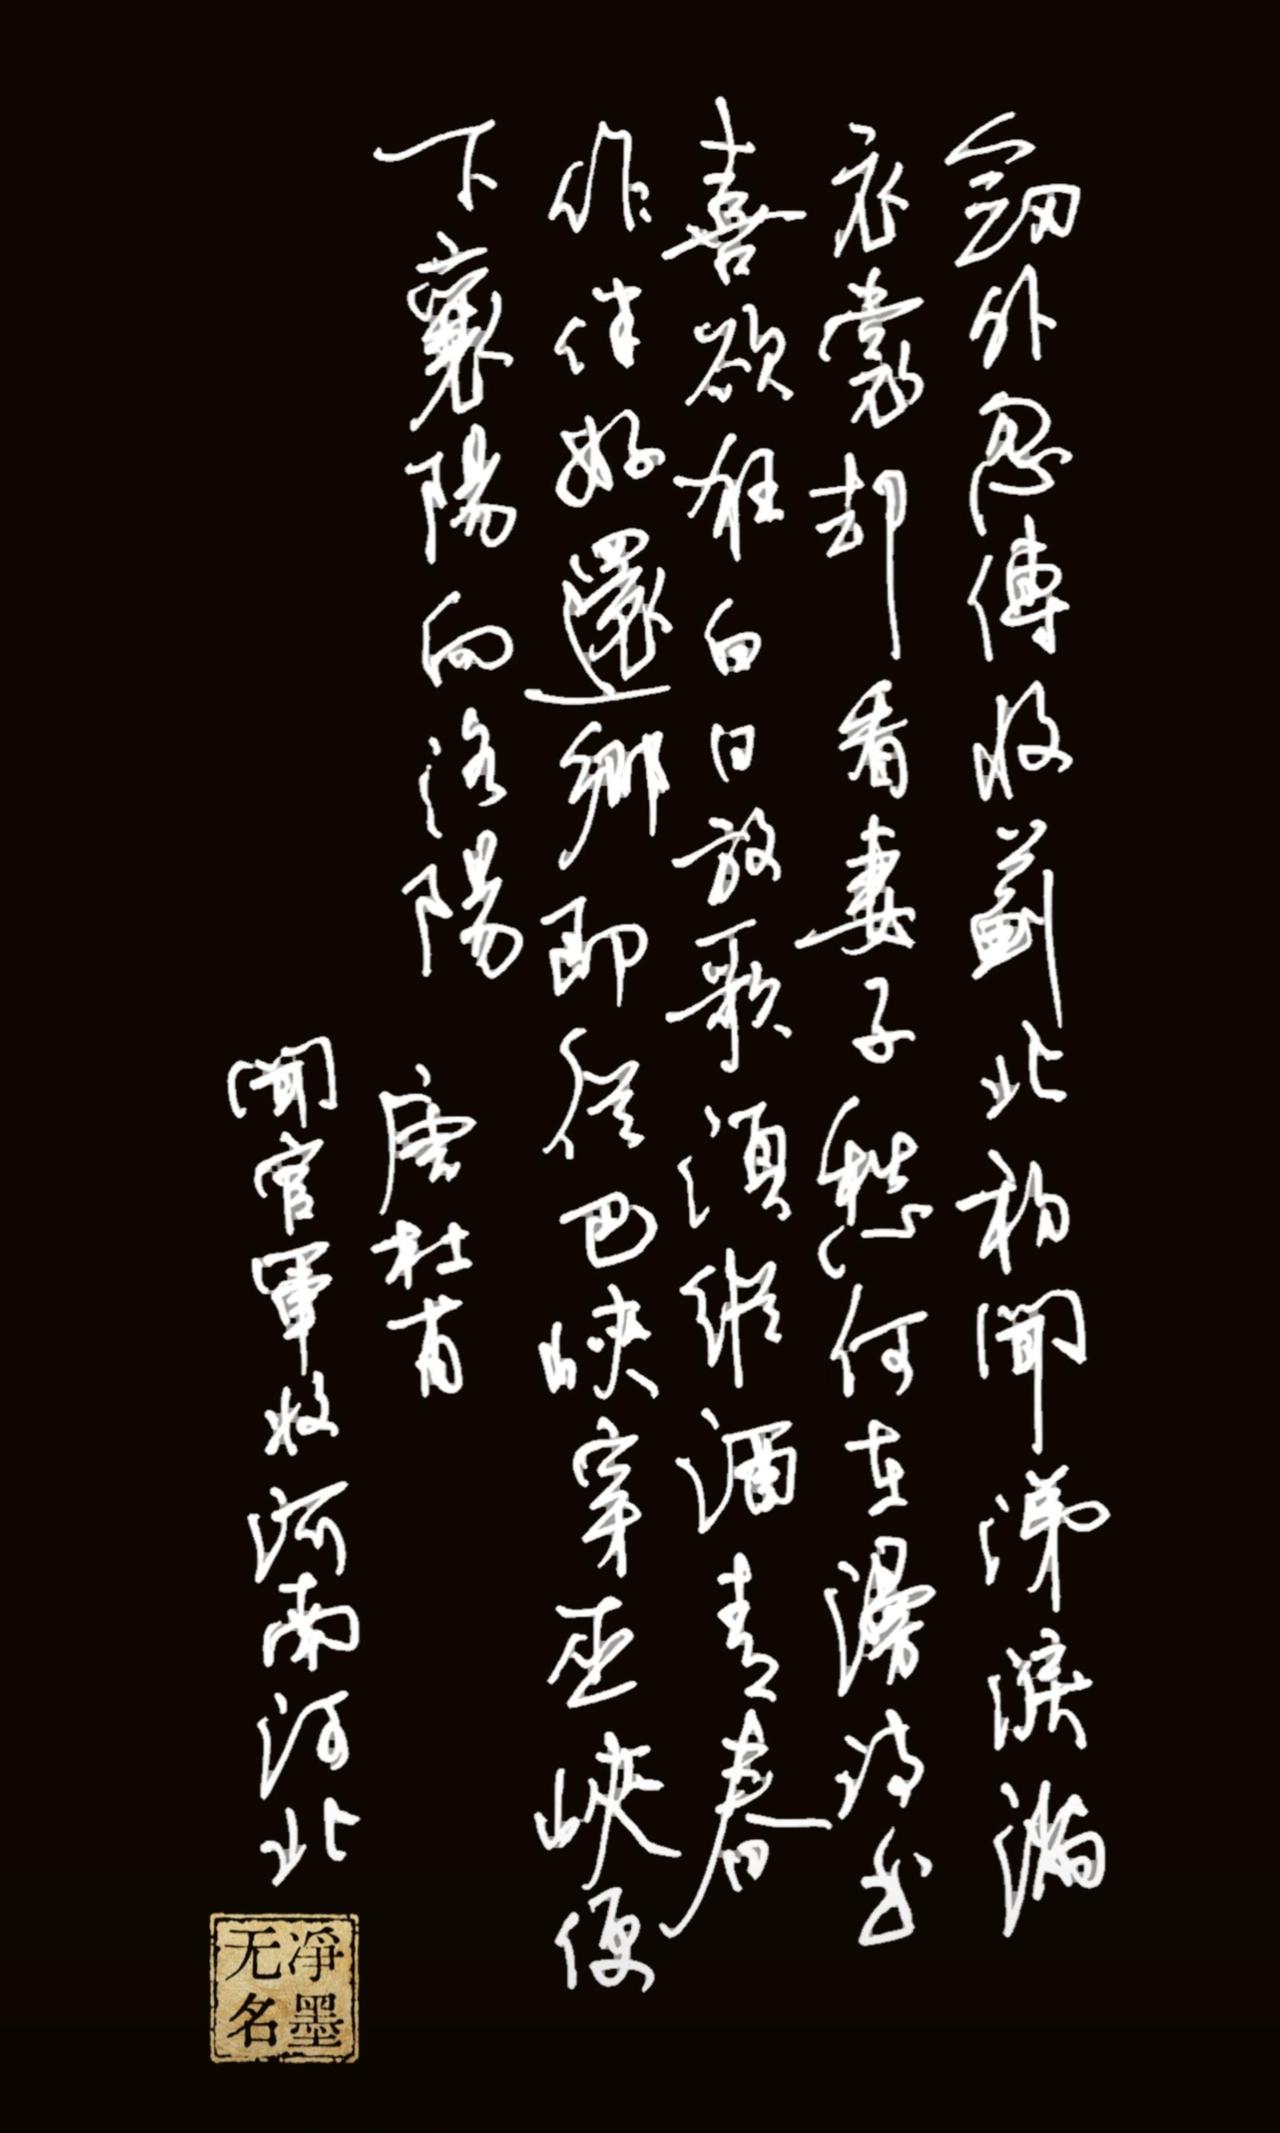 劒外忽傳收薊北初聞涕淚滿
衣裳却看妻子愁何在漫詩書
喜欲狂白日放歌須縱酒青春
作伴好還鄉即從巴峽穿巫峽便
下襄陽向洛陽
唐杜甫
聞官軍收河南河北
净墨
无名